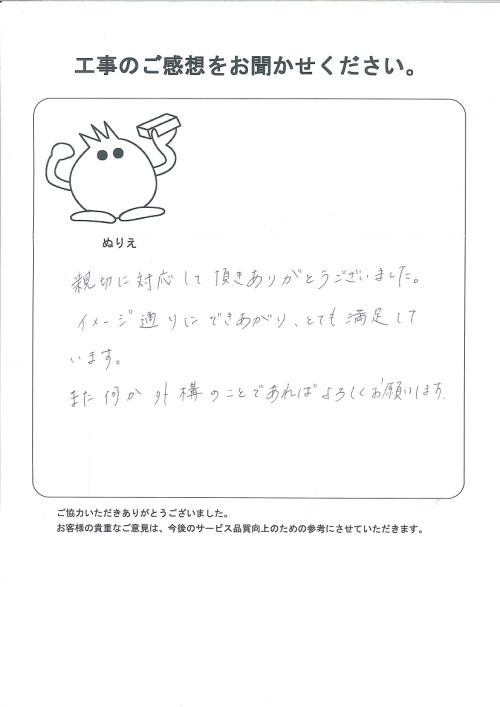 工事のご感想をお聞かせください。
ぬりえ
親切に対応して頂きありがとうございました。
イメージ通りにできあがり、とても満足して
います。
また何か外構のことであればよろしくお願いします。
ご協力いただきありがとうございました。
お客様の貴重なご意見は、今後のサービス品質向上のための参考にさせていただきます。